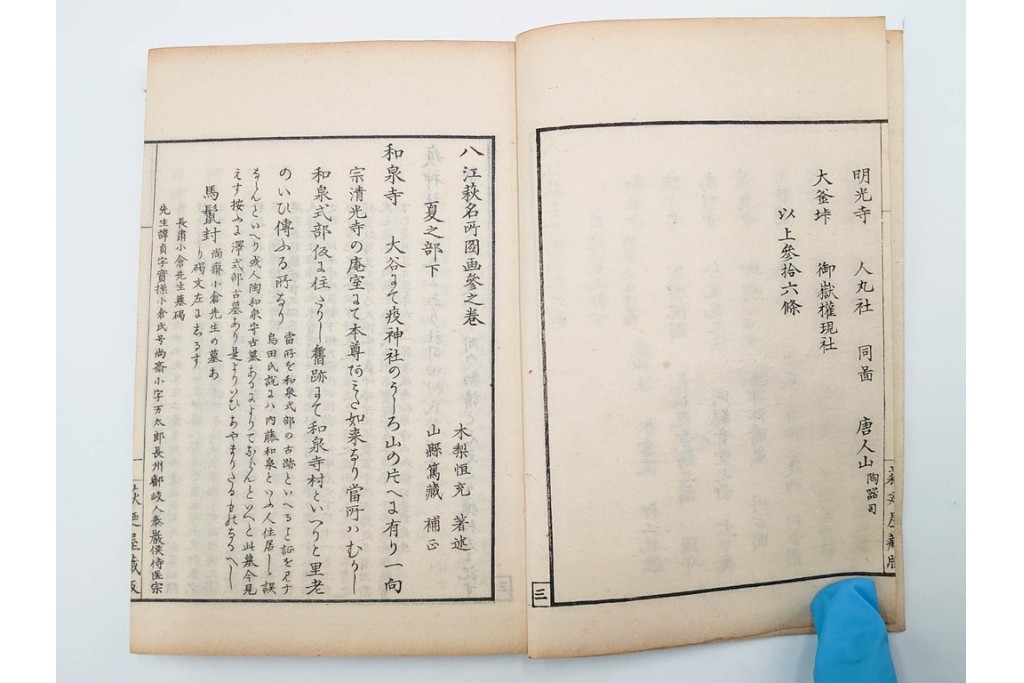 明光寺 人丸社 同啚 唐人山 陶器司
大釜垰 御嶽權現社
以上參拾六條
三
八江萩名所圖画參之卷 木梨恒充 著述
夏之部下 山縣篤藏 補正
和泉寺 大谷にて疫神社のうしろ山の片へに有り一向
宗清光寺の庵室にて本尊阿ミた如来なり當所ハむかし
和泉式部仮に住たりし舊跡にて和泉寺村といへりと里老
のいひ傳ふる所なり 當所を和泉式部の古跡といへると証を見す
島田氏説にハ内藤和泉といふ人住居し誤
ならんといへり或人陶和泉守古墓あるによりてならんといへと此墓今見
えす按ふに澤式部古墓あり是よりいひあやまりたるものなるへし
馬鬛封 尚齋小倉先生の墓あ
り碣文左にしるす
長肅小倉先生墓碣
先生諱貞字實操小倉氏号尚齋小字万太郎長州鄙岐人泰嚴侯侍医宗
萩廼屋藏版